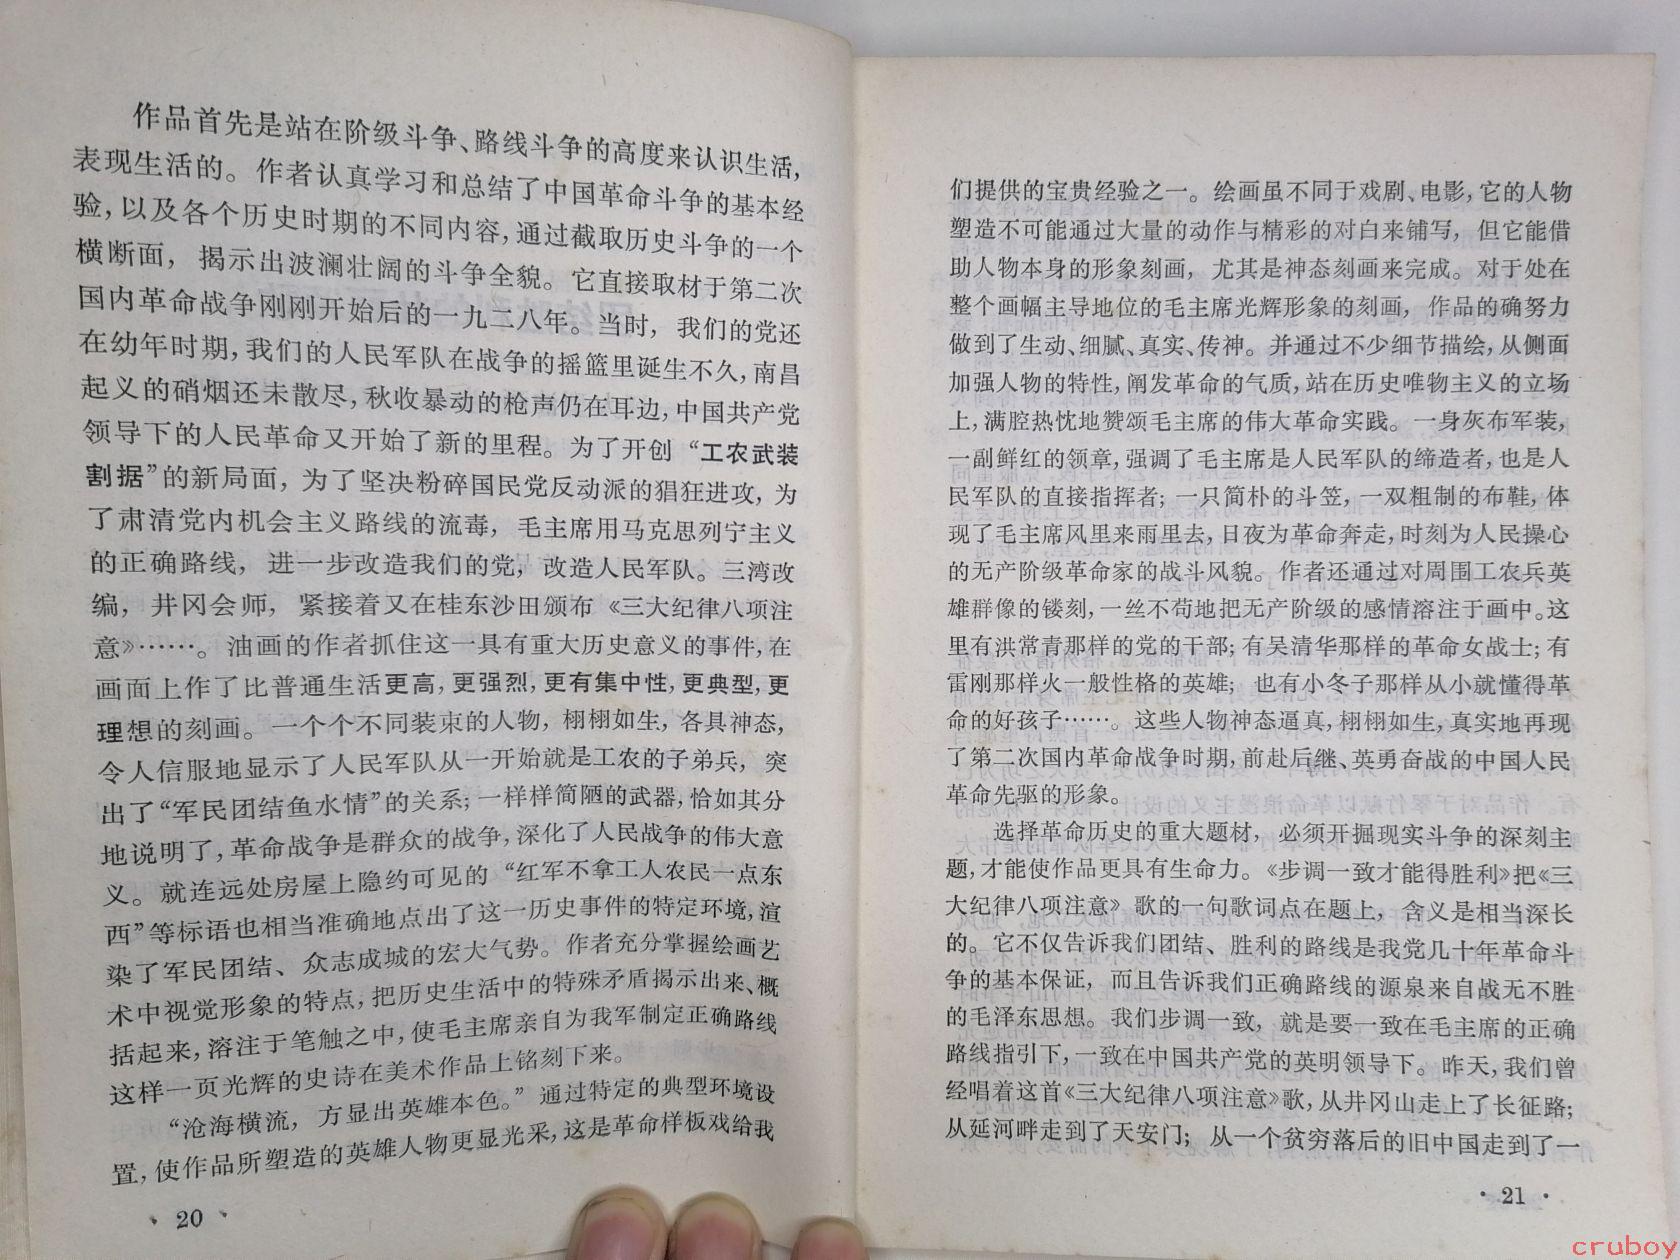 作品首先是站在阶级斗争、路线斗争的高度来认识生活,
表现生活的。作者认真学习和总结了中国革命斗争的基本经
验,以及各个历史时期的不同内容,通过截取历史斗争的一个
横断面，揭示出波澜壮阔的斗争全貌。它直接取材于第二次
国内革命战争刚刚开始后的一九二八年。当时，我们的党还
在幼年时期,我们的人民军队在战争的摇篮里诞生不久,南昌
起义的硝烟还未散尽,秋收暴动的枪声仍在耳边,中国共产党
领导下的人民革命又开始了新的里程。为了开创“工农武装
割据”的新局面，为了坚决粉碎国民党反动派的猖狂进攻，为
了肃清党内机会主义路线的流毒，毛主席用马克思列宁主义
的正确路线，进一步改造我们的党，改造人民军队。三湾改
编，井冈会师，紧接着又在桂东沙田颁布《三大纪律八项注
意》……。油画的作者抓住这一具有重大历史意义的事件,在
画面上作了比普通生活更高,更强烈,更有集中性,更典型,更
理想的刻画。一个个不同装束的人物，栩栩如生，各具神态,
令人信服地显示了人民军队从一开始就是工农的子弟兵，突
出了“军民团结鱼水情”的关系;一样样简陋的武器,恰如其分
地说明了,革命战争是群众的战争,深化了人民战争的伟大意
义。就连远处房屋上隐约可见的“红军不拿工人农民一点东
西”等标语也相当准确地点出了这一历史事件的特定环境,渲
染了军民团结、众志成城的宏大气势。作者充分掌握绘画艺
术中视觉形象的特点,把历史生活中的特殊矛盾揭示出来、概
括起来,溶注于笔触之中,使毛主席亲自为我军制定正确路线
这样一页光辉的史诗在美术作品上铭刻下来。
“沧海横流，方显出英雄本色。”通过特定的典型环境设
置,使作品所塑造的英雄人物更显光采,这是革命样板戏给我
· 20 ·
们提供的宝贵经验之一。绘画虽不同于戏剧、电影,它的人物
塑造不可能通过大量的动作与精彩的对白来铺写，但它能借
助人物本身的形象刻画，尤其是神态刻画来完成。对于处在
整个画幅主导地位的毛主席光辉形象的刻画，作品的确努力
做到了生动、细腻、真实、传神。并通过不少细节描绘,从侧面
加强人物的特性,阐发革命的气质,站在历史唯物主义的立场
上,满腔热忱地赞颂毛主席的伟大革命实践。一身灰布军装,
一副鲜红的领章,强调了毛主席是人民军队的缔造者,也是人
民军队的直接指挥者;一只简朴的斗笠,一双粗制的布鞋,体
现了毛主席风里来雨里去,日夜为革命奔走,时刻为人民操心
的无产阶级革命家的战斗风貌。作者还通过对周围工农兵英
雄群像的镂刻,一丝不苟地把无产阶级的感情溶注于画中。这
里有洪常青那样的党的干部;有吴清华那样的革命女战士;有
雷刚那样火一般性格的英雄；也有小冬子那样从小就懂得革
命的好孩子……。这些人物神态逼真,栩栩如生,真实地再现
了第二次国内革命战争时期,前赴后继、英勇奋战的中国人民
革命先驱的形象。
选择革命历史的重大题材，必须开掘现实斗争的深刻主
题,才能使作品更具有生命力。《步调一致才能得胜利》把《三
大纪律八项注意》歌的一句歌词点在题上，含义是相当深长
的。它不仅告诉我们团结、胜利的路线是我党几十年革命斗
争的基本保证，而且告诉我们正确路线的源泉来自战无不胜
的毛泽东思想。我们步调一致，就是要一致在毛主席的正确
路线指引下,一致在中国共产党的英明领导下。昨天,我们曾
经唱着这首《三大纪律八项注意》歌,从井冈山走上了长征路;
从延河畔走到了天安门；从一个贫穷落后的旧中国走到了一
· 21 ·
cruboy